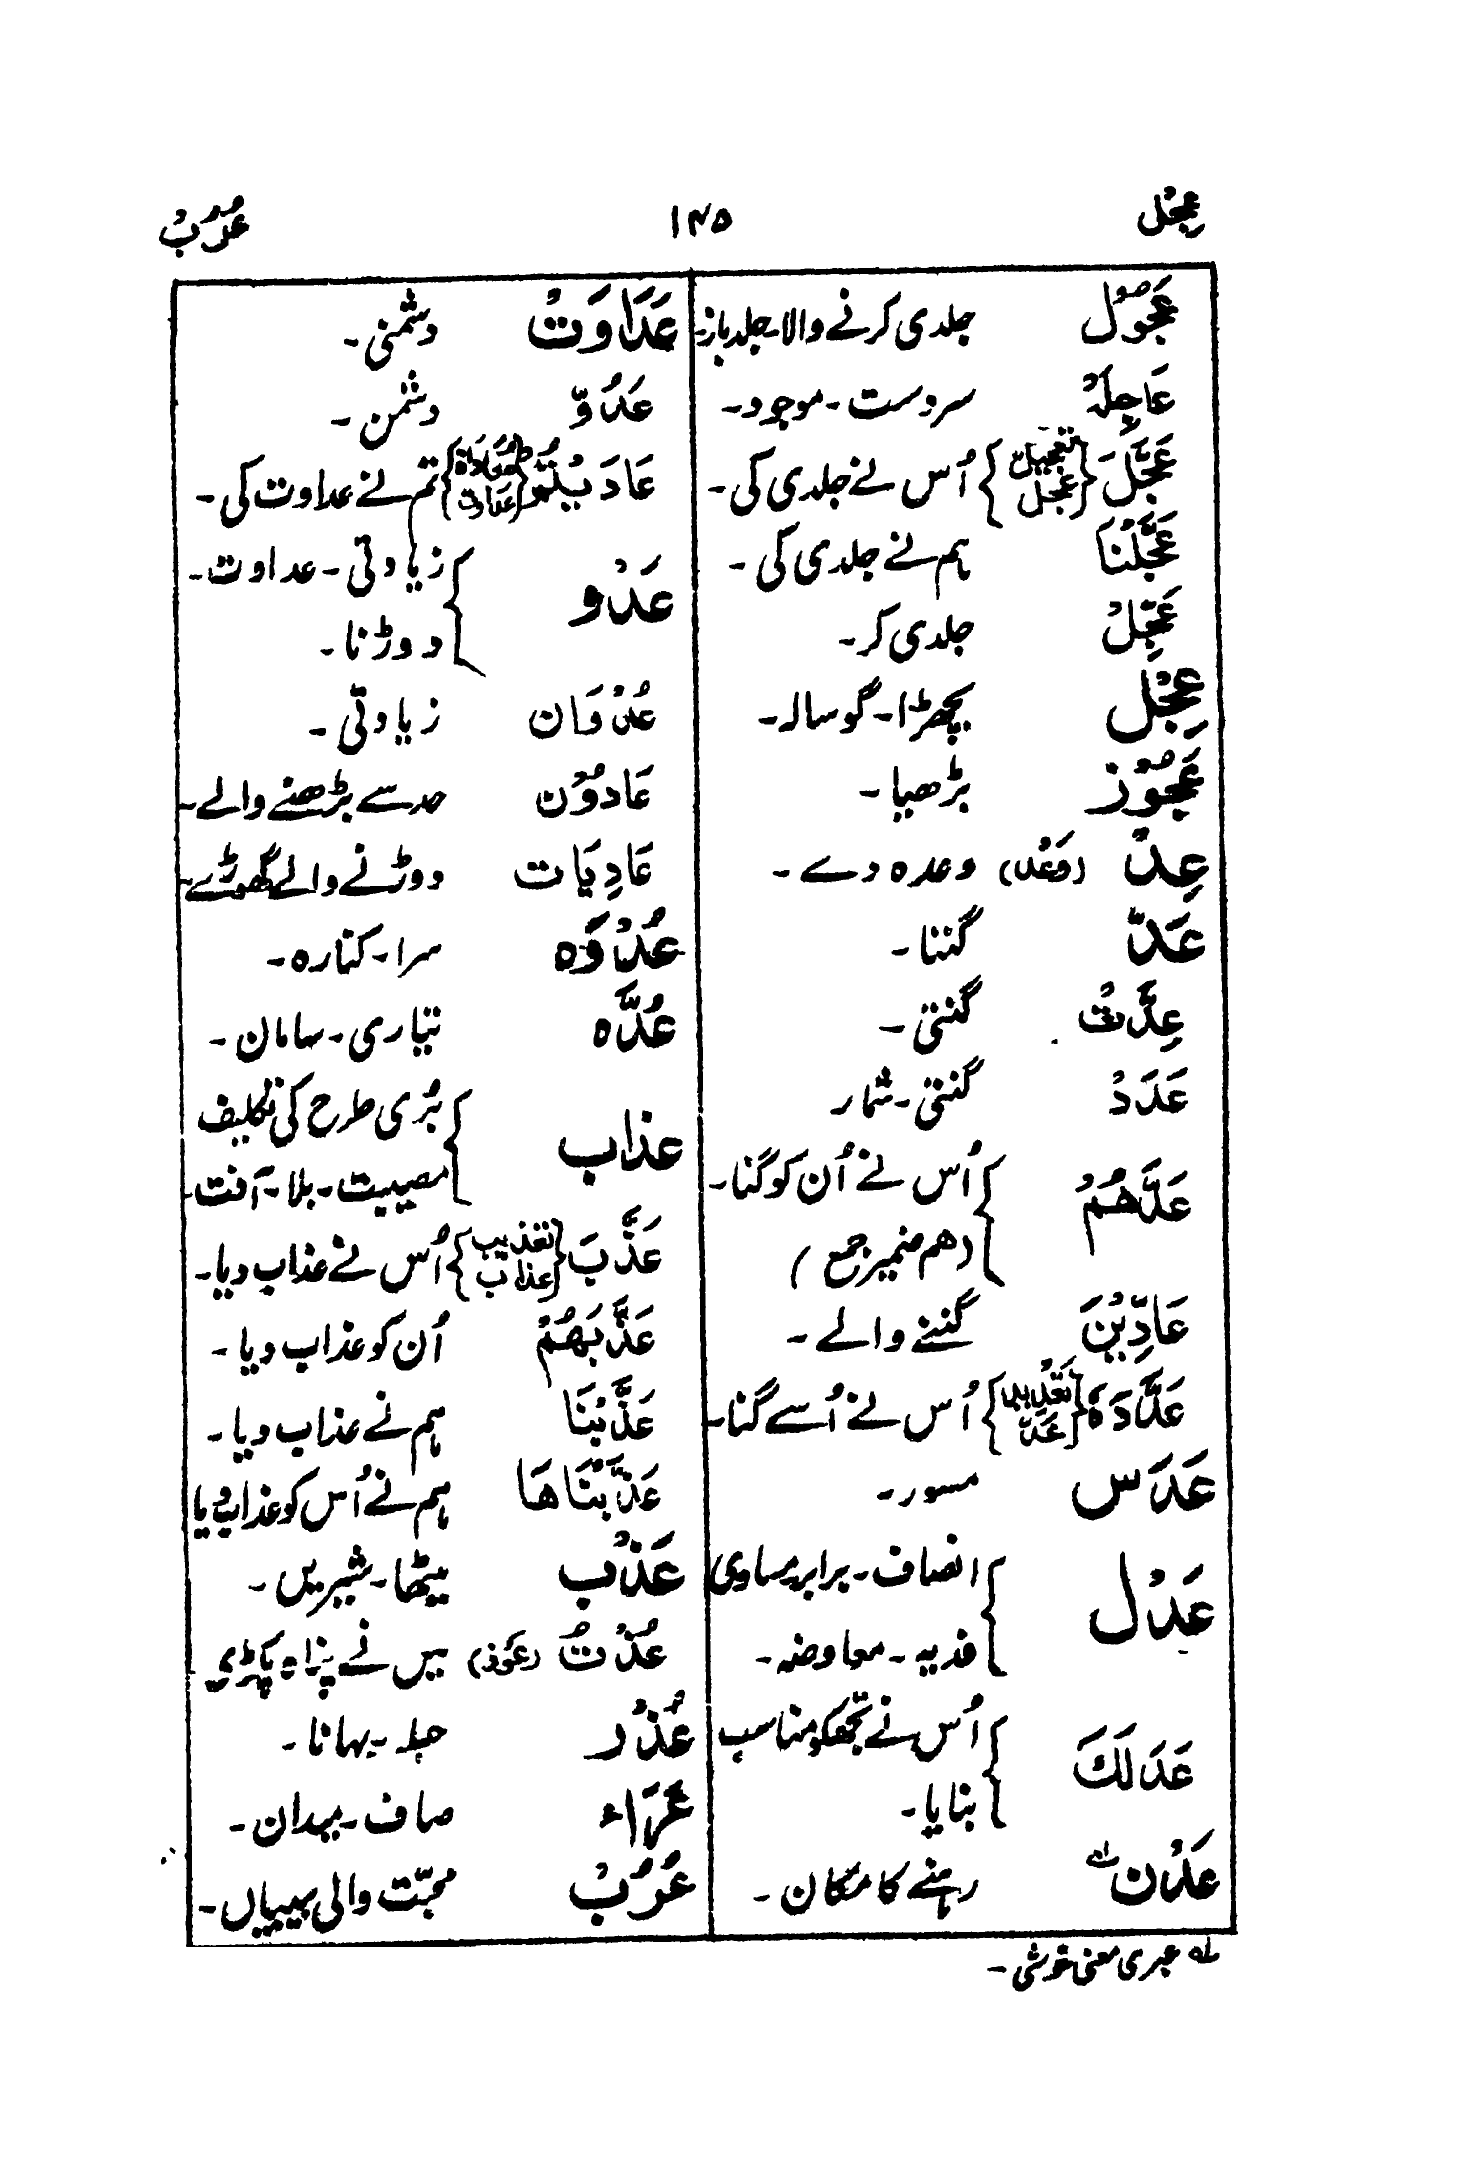 عِجْل ۱۴۵ عُرُبْ
عَجُوْل جلدی کرنے والا۔جلد باز۔
عَاجِلَہْ سردست۔موجود۔
عَجَّلَ {تعجیل عَجَل} اُس نے جلدی کی۔
عَجَّلْنَا ہم نے جلدی کی۔
عَجِّلْ جلدی کر۔
عِجْل بچھڑا۔گوسالہ۔
عَجُوْز بڑھیا۔
عِدْ (وَعْد) وعدہ دے۔
عَدّ گننا۔
عِدَّتْ گنتی۔
عَدَدْ گنتی۔شمار
عَدَّھُمْ اُس نے اُن کو گنا۔
(ھم ضمیر جمع)
عَادِّیْنَ گننے والے۔
عَدَّدَہٗ {عَدّ} اُس نے اُسے گنا۔
عَدَس مسور۔
عَدْل انصاف۔برابر۔مساوی
فدیہ۔معاوضہ۔
عَدَلَكَ اُس نے تجھکو مناسب
بنایا۔
عَدْن لہ رہنے کا مکان۔
عَدَاوَتْ دشمنی۔
عَدُوّ دشمن۔
عَادَیْتُمْ {مُعَادَاۃ عَادت} تم نے عداوت کی۔
عَدْو زیادتی۔عداوت۔
دوڑنا۔
عُدْوَان زیادتی۔
عَادُوْن حد سے بڑھنے والے۔
عَادِیَات دوڑنے والے گھوڑے۔
عُدْوَہ سرا۔کنارہ۔
عُدَّہ تیاری۔سامان۔
عذاب بُری طرح کی تکلیف
مصیبت۔بلا۔آفت۔
عَذَّبَ {تعذیب عذاب} اُس نے عذاب دیا۔
عَذَّبَھُمْ اُن کو عذاب دیا۔
عَذَّبْنَا ہم نے عذاب دیا۔
عَذَّبْنَاھَا ہم نے اُس کو عذاب دیا
عَذْب میٹھا۔شیریں۔
عُذْتُ (عَوذ) میں نے پناہ پکڑی
عُذْر حیلہ۔بہانا۔
عَرَاء صاف۔میدان۔
عُرُبْ محبّت والی بیبیاں۔
لہ عبری معنی خوشی۔